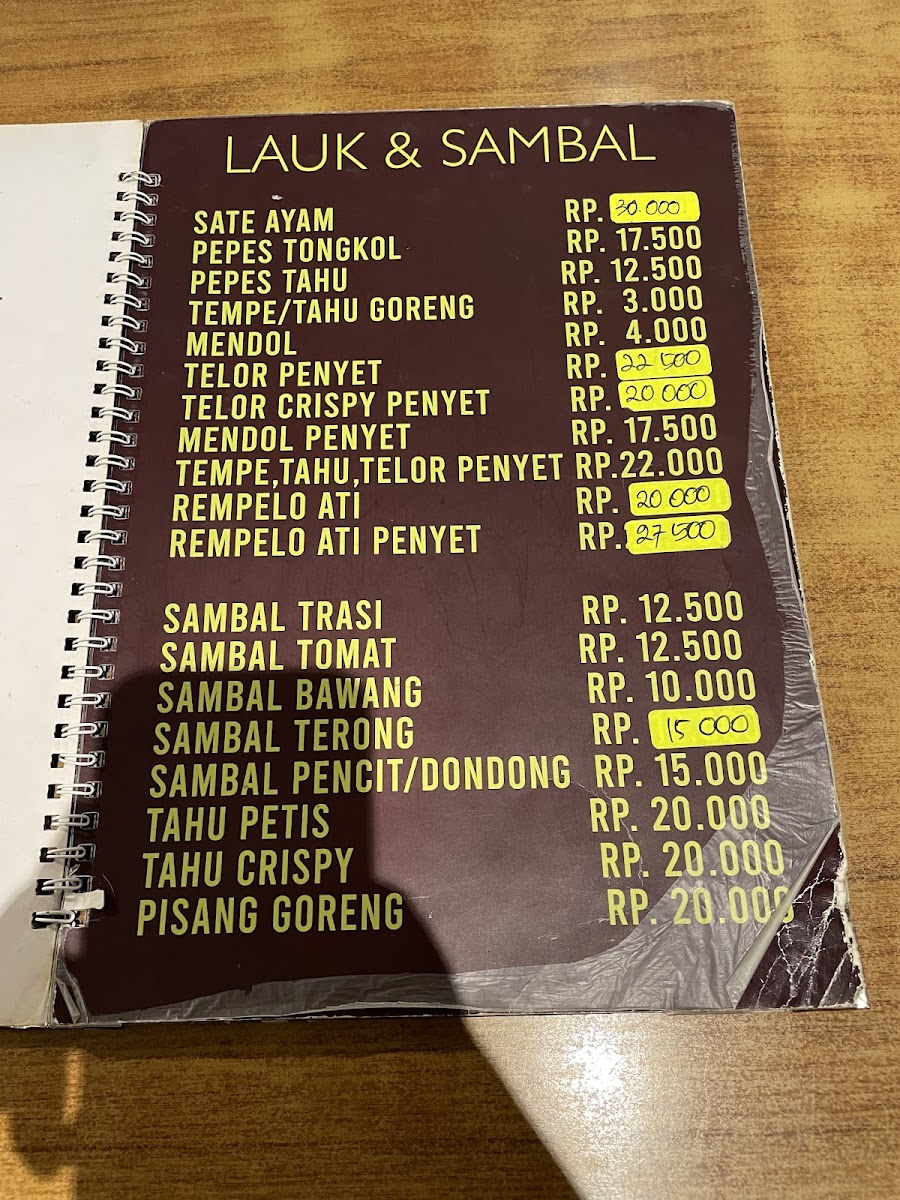 LAUK & SAMBAL
SATE AYAM RP. 30.000
PEPES TONGKOL RP. 17.500
PEPES TAHU RP. 12.500
TEMPE/TAHU GORENG RP. 3.000
MENDOL RP. 4.000
TELOR PENYET RP. 22 500
TELOR CRISPY PENYET RP. 20 000
MENDOL PENYET RP. 17.500
TEMPE,TAHU,TELOR PENYET RP.22.000
REMPELO ATI RP. 20 000
REMPELO ATI PENYET RP. 27 500
SAMBAL TRASI RP. 12.500
SAMBAL TOMAT RP. 12.500
SAMBAL BAWANG RP. 10.000
SAMBAL TERONG RP. 15 000
SAMBAL PENCIT/DONDONG RP. 15.000
TAHU PETIS RP. 20.000
TAHU CRISPY RP. 20.000
PISANG GORENG RP. 20.000